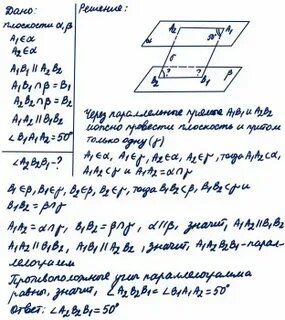 Дано:
плоскости α, β
A₁∈α
A₂∈α
A₁B₁ ∥ A₂B₂
A₁B₁ ∩ β = B₁
A₂B₂ ∩ β = B₂
A₁A₂ ∥ B₁B₂
∠B₁A₁A₂ = 50°
∠A₂B₂B₁ - ?
Решение:
A₂ 50° A₁
α
γ
? ?
B₂ B₁ β
Через параллельные прямые A₁B₁ и A₂B₂
можно провести плоскость и притом
только одну (γ)
A₁∈α, A₁∈γ, A₂∈α, A₂∈γ, тогда A₁A₂⊂α,
A₁A₂⊂γ и A₁A₂ = α∩γ
B₁∈β, B₁∈γ, B₂∈β, B₂∈γ, тогда B₁B₂⊂β, B₁B₂⊂γ и
B₁B₂ = β∩γ
A₁A₂ = α∩γ, B₁B₂ = β∩γ, α∥β, значит, A₁A₂∥B₁B₂
A₁A₂∥B₁B₂, A₁B₁∥A₂B₂, значит, A₁A₂B₂B₁-парал-
лелограмм
Противоположные углы параллелограмма
равны, значит, ∠A₂B₂B₁ = ∠B₁A₁A₂ = 50°
Ответ: ∠A₂B₂B₁ = 50°